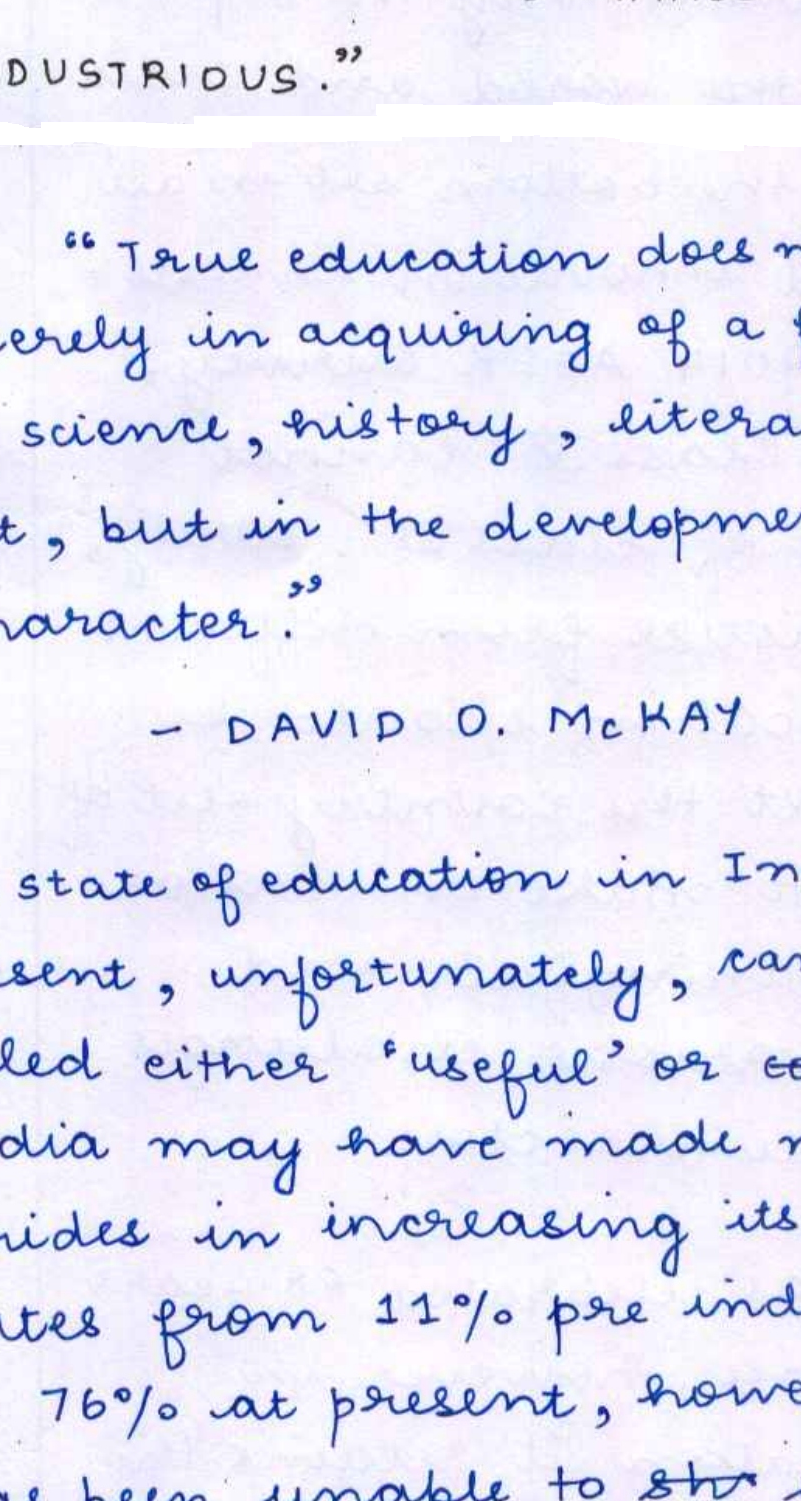 DUSTRIOUS."
"True education does n
erely in acquiring of a f
science, history, litera
t, but in the developme
haracter."
- DAVID O. McKAY
state of education in In
sent, unfortunately, can
led either 'useful' or
dia may have made m
rides in increasing its
ates from 11% pre ind
76% at present, howe
been unable to